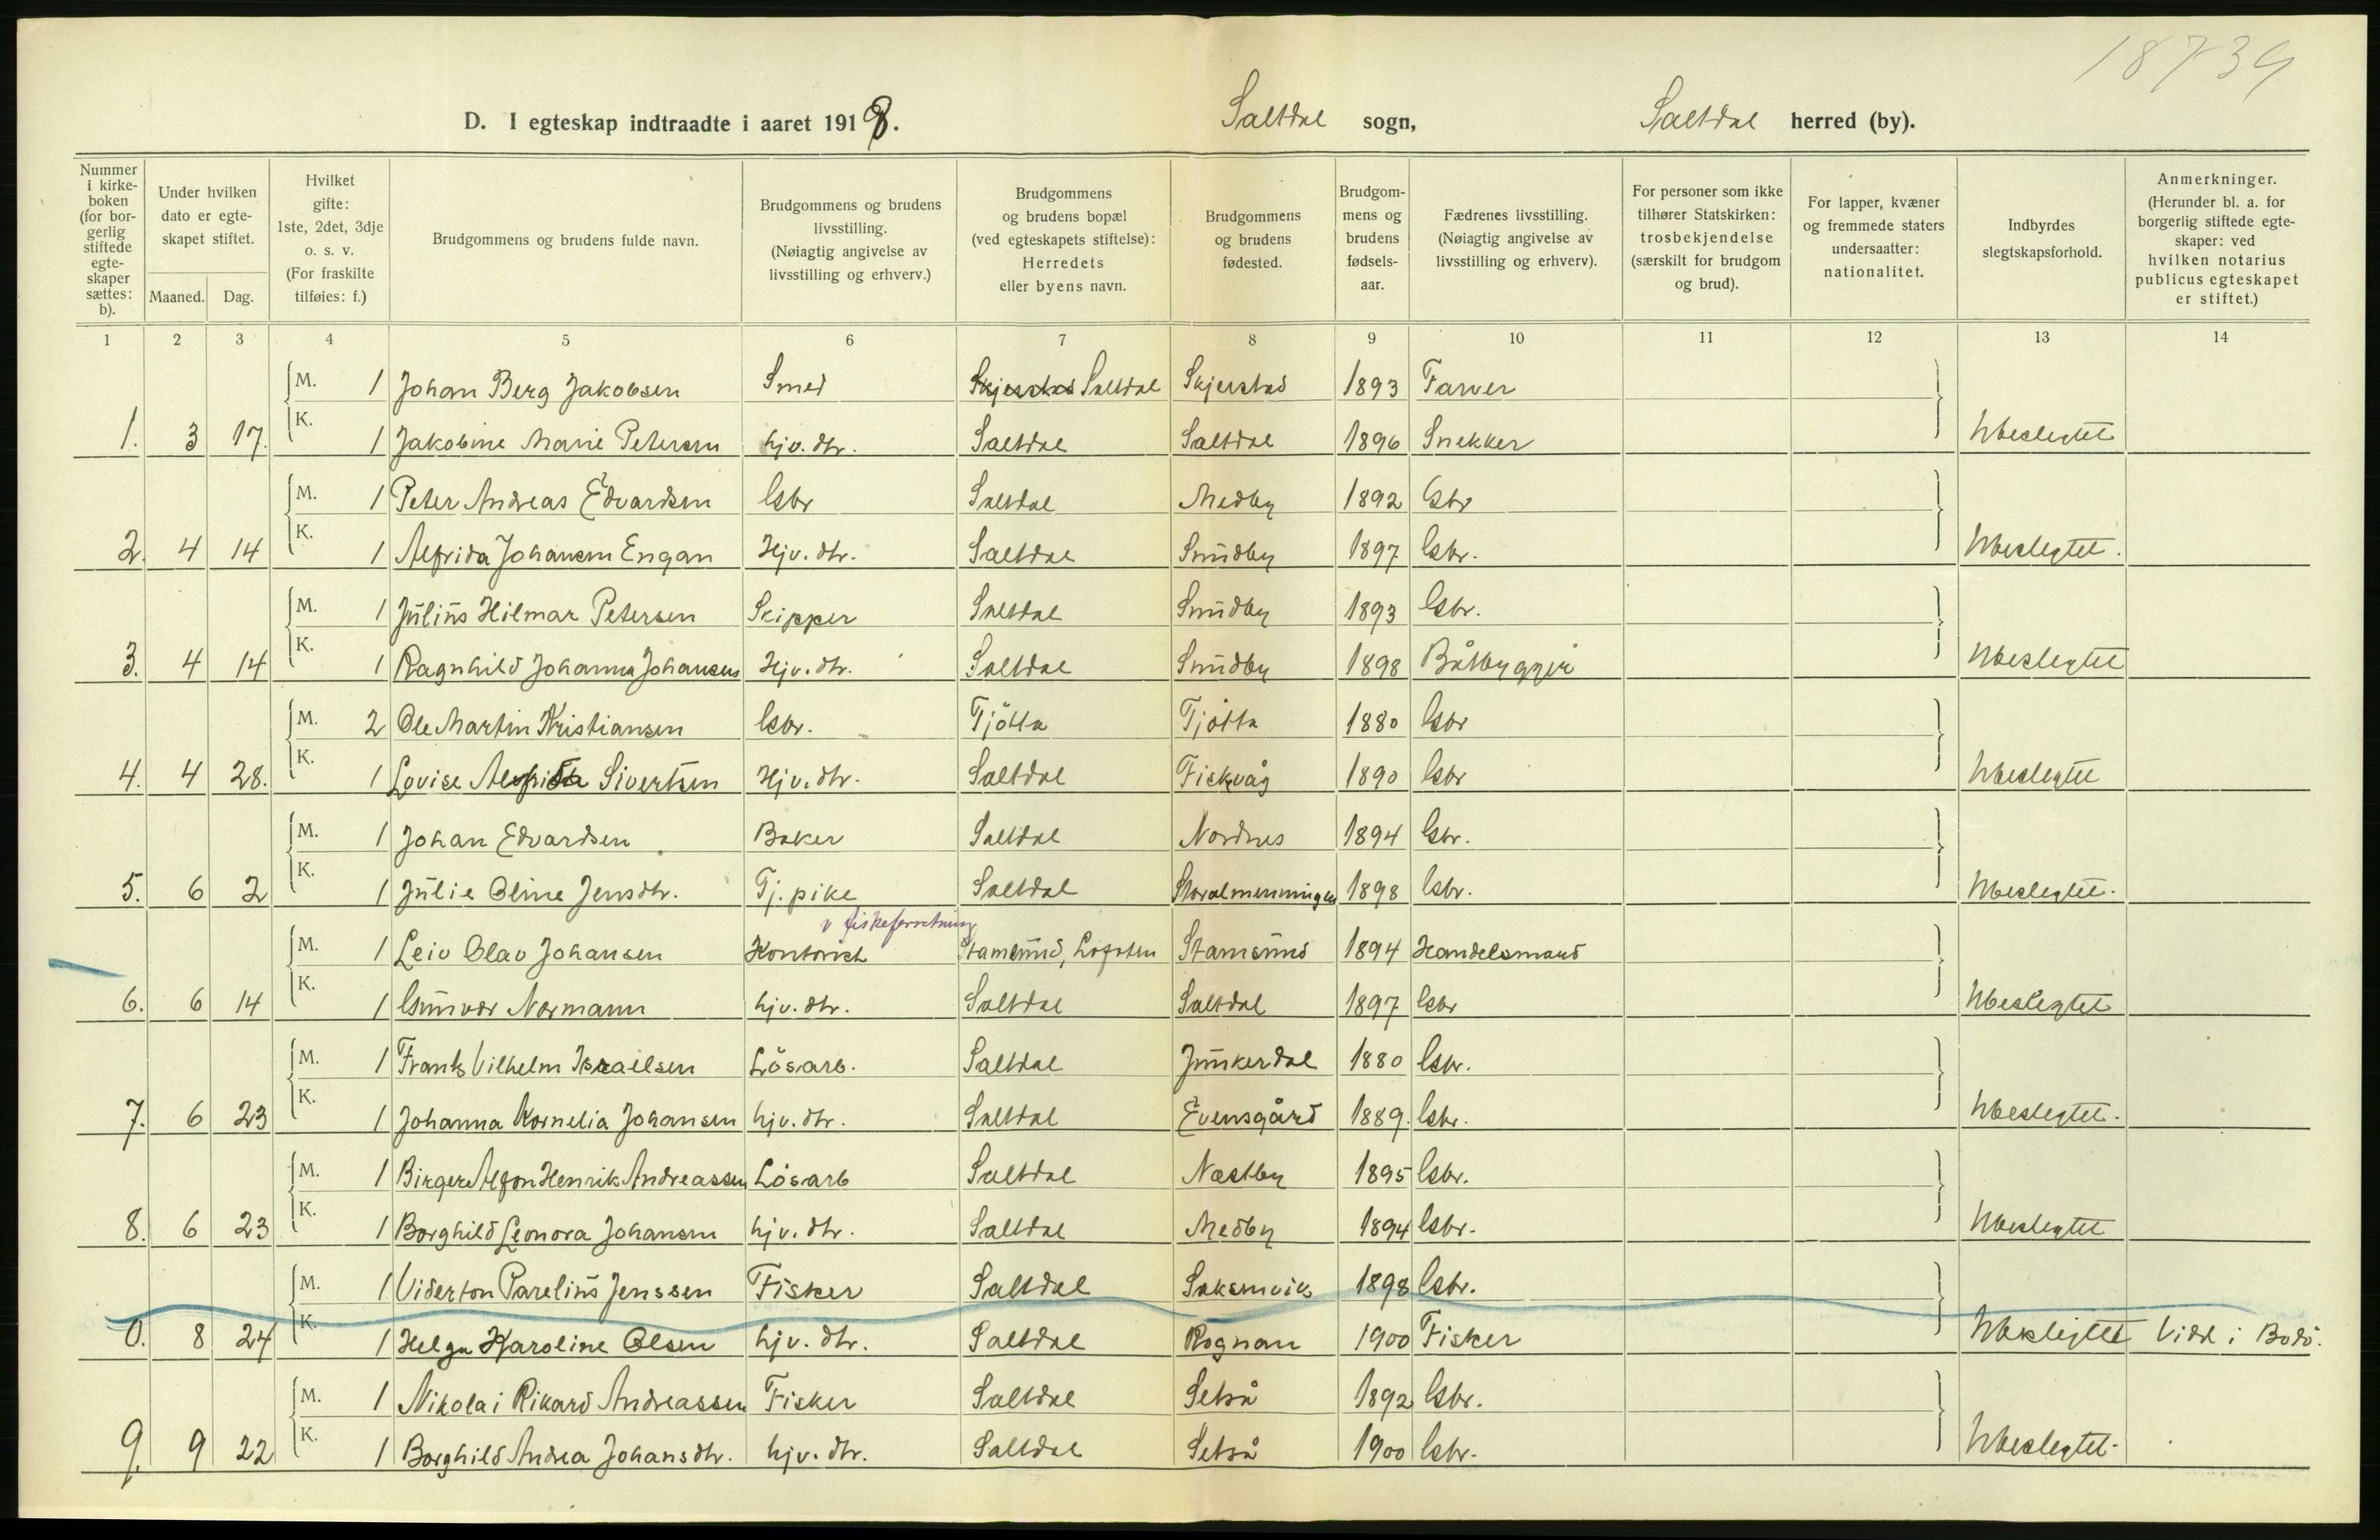 18739
D. I egteskap indtraadte i aaret 1918. Saltdal sogn, Saltdal herred (by).
Nummer i kirkeboken (for borgerlig stiftede egteskaper sættes: b).
Under hvilken dato er egteskapet stiftet.
Maaned. Dag.
Hvilket gifte: 1ste, 2det, 3dje o. s. v. (For fraskilte tilføies: f.)
Brudgommens og brudens fulde navn.
Brudgommens og brudens livsstilling. (Nøiagtig angivelse av livsstilling og erhverv.)
Brudgommens og brudens bopæl (ved egteskapets stiftelse): Herredets eller byens navn.
Brudgommens og brudens fødested.
Brudgommens og brudens fødselsaar.
Fædrenes livsstilling. (Nøiagtig angivelse av livsstilling og erhverv).
For personer som ikke tilhører Statskirken: trosbekjendelse (særskilt for brudgom og brud).
For lapper, kvæner og fremmede staters undersaatter: nationalitet.
Indbyrdes slegtskapsforhold.
Anmerkninger. (Herunder bl. a. for borgerlig stiftede egteskaper: ved hvilken notarius publicus egteskapet er stiftet.)
1 2 3 4 5 6 7 8 9 10 11 12 13 14
M. 1 Johan Berg Jakobsen Smed Skjerstad Saltdal Skjerstad 1893 Farver
1. 3 17. K. 1 Jakobine Marie Petersen hjv. dtr. Saltdal Saltdal 1896 Snekker Ubeslegtet
M. 1 Peter Andreas Edvardsen Gbr Saltdal Medby 1892 Gbr
2. 4 14 K. 1 Alfrida Johansen Engan Hjv. dtr. Saltdal Sundby 1897 Gbr. Ubeslegtet.
M. 1 Julius Hilmar Petersen Skipper Saltdal Sundby 1893 Gbr.
3. 4 14 K. 1 Ragnhild Johanna Johansens Hjv. dtr. Saltdal Sundby 1898 Båtbygger Ubeslegtet
M. 2 Ole Martin Kristiansen Gbr. Tjötta Tjötta 1880 Gbr
4. 4 28. K. 1 Lovise Alfrida Sivertsen Hjv. dtr. Saltdal Fiskvåg 1890 Gbr Ubeslegtet
M. 1 Johan Edvardsen Baker Saltdal Nordnes 1894 Gbr.
5. 6 2 K. 1 Julie Oline Jensdtr. Tj. pike Saltdal Storalmenningen 1898 Gbr. Ubeslegtet.
v fiskeforretning
M. 1 Leiv Olav Johansen Kontorist Stamsund, Lofoten Stamsund 1894 Handelsmand
6. 6 14 K. 1 Gunvor Normann hjv. dtr. Saltdal Saltdal 1897 Gbr Ubeslegtet
M. 1 Frants Vilhelm Israelsen Lösarb. Saltdal Junkerdal 1880 Gbr.
7. 6 23 K. 1 Johanna Kornelia Johansen hjv. dtr. Saltdal Evensgård 1889. Gbr. Ubeslegtet.
M. 1 Birger Alfon Henrik Andreassen Lösarb Saltdal Næstby 1895 Gbr.
8. 6 23 K. 1 Borghild Leonora Johansen hjv. dtr. Saltdal Medby 1894 Gbr. Ubeslegtet
M. 1 Viderton Parelius Jenssen Fisker Saltdal Saksenvik 1898 Gbr.
0. 8 24 K. 1 Helga Karoline Olsen hjv. dtr. Saltdal Rognan 1900 Fisker Ubeslegtet Viet i Bodö.
M. 1 Nikolai Rikard Andreassen Fisker Saltdal Setså 1892 Gbr.
9. 9 22 K. 1 Borghild Andrea Johansdtr. hjv. dtr. Saltdal Setså 1900 Gbr. Ubeslegtet.